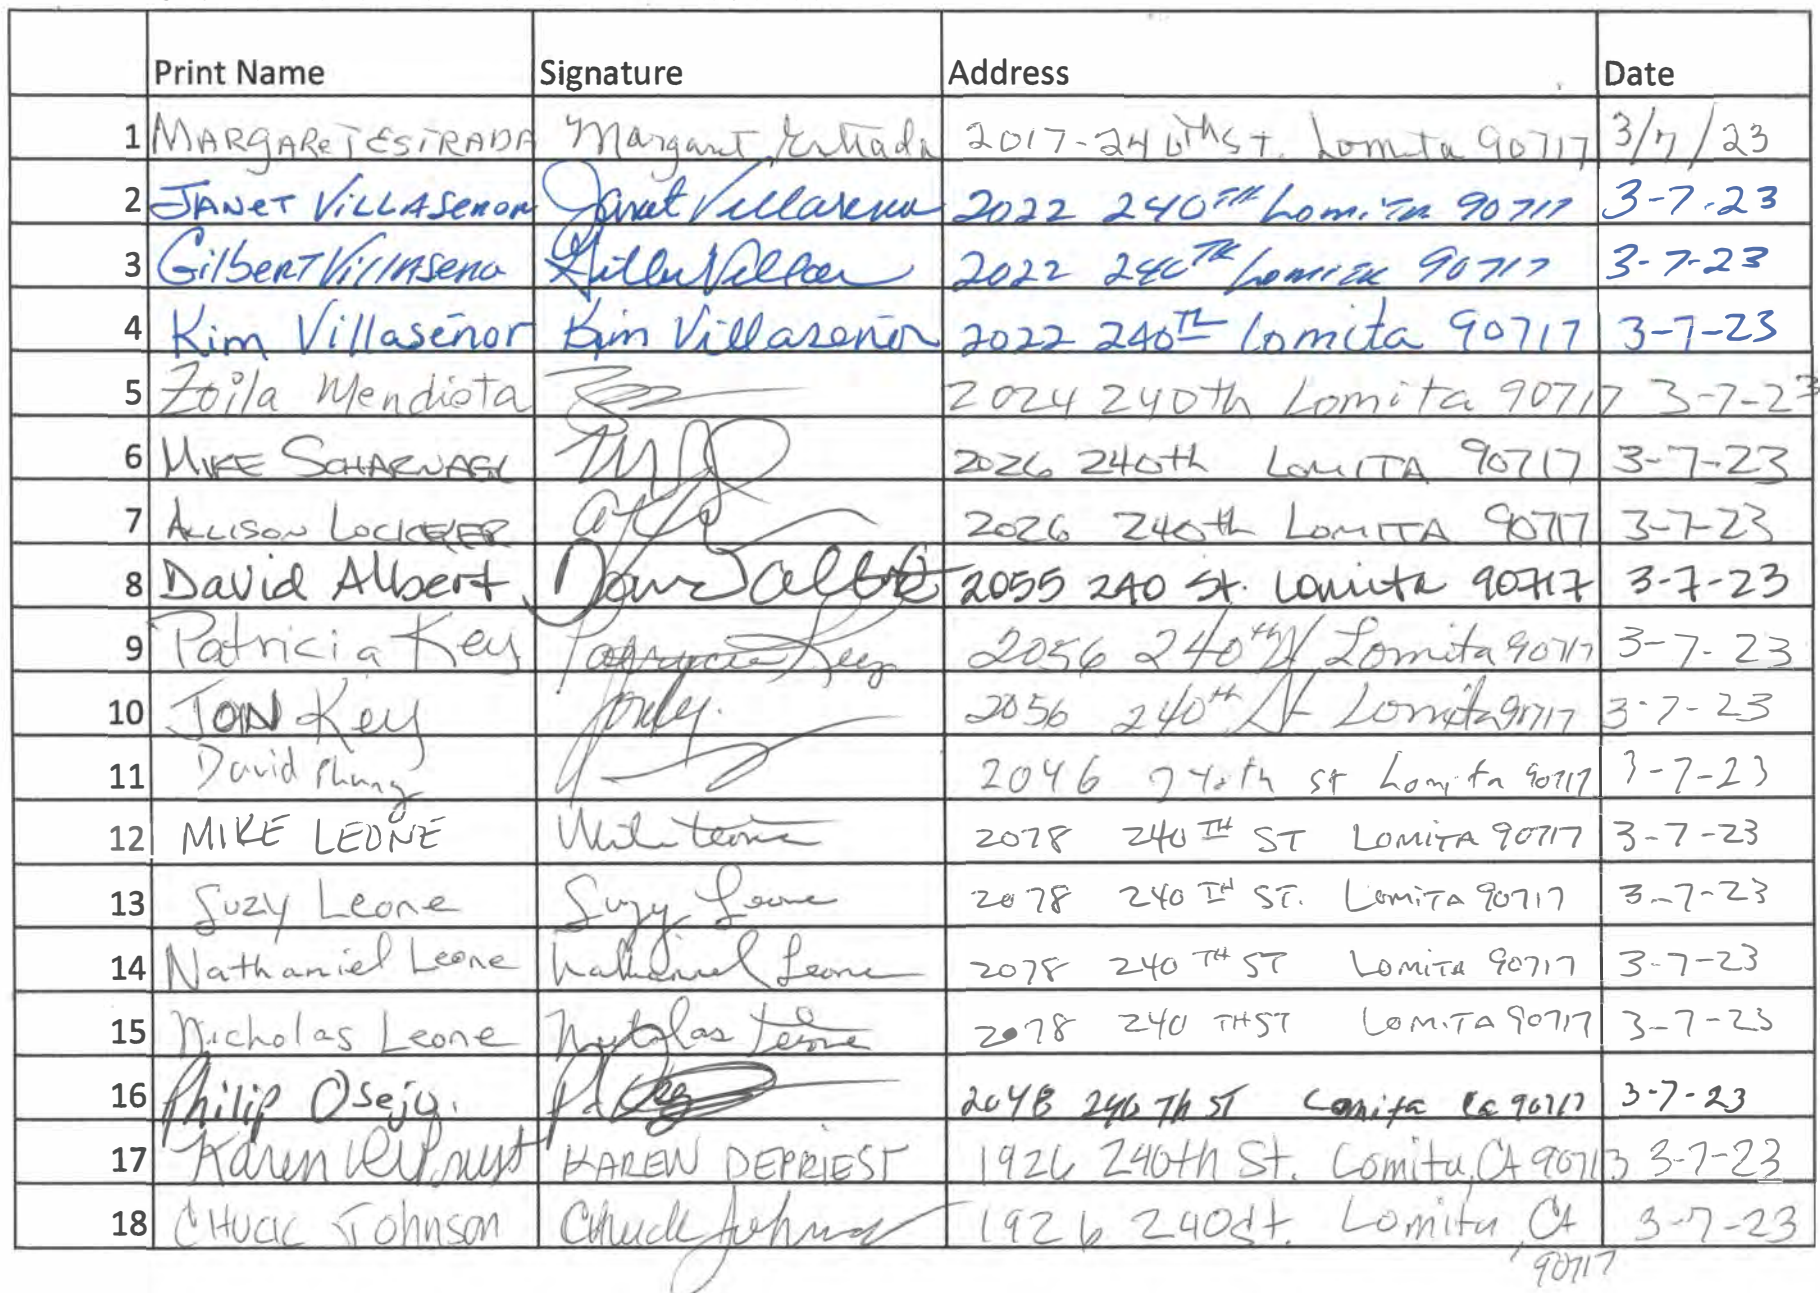 Print Name Signature Address Date
1 MARGARET ESTRADA Margaret Estrada 2017-240th St. Lomita 90717 3/7/23
2 JANET VILLASENOR Janet Villasenor 2022 240TH Lomita 90717 3-7-23
3 Gilbert Villaseno 2022 240TH Lomita 90717 3-7-23
4 Kim Villaseñor Kim Villaseñor 2022 240TH Lomita 90717 3-7-23
5 Zoila Mendiota 2024 240th Lomita 90717 3-7-23
6 MIKE SCHARNAGL 2026 240th LOMITA 90717 3-7-23
7 ALLISON 2026 240th LOMITA 90717 3-7-23
8 David Albert David Albert 2055 240 St. Lomita 90717 3-7-23
9 Patricia Key Patricia Key 2056 240th St Lomita 90717 3-7-23
10 JON Key 2056 240th St Lomita 90717 3-7-23
11 David Phung 2046 240th st Lomita 90717 3-7-23
12 MIKE LEONE Mike Leone 2078 240TH ST LOMITA 90717 3-7-23
13 Suzy Leone Suzy Leone 2078 240TH ST. LOMITA 90717 3-7-23
14 Nathaniel Leone Nathaniel Leone 2078 240TH ST LOMITA 90717 3-7-23
15 Nicholas Leone Nicholas Leone 2078 240 TH ST LOMITA 90717 3-7-23
16 Philip Oseju. 2048 240 Th ST Lomita Ca 90717 3-7-23
17 Karen DePriest KAREN DEPRIEST 1926 240th St. Lomita, CA 90713 3-7-23
18 CHUCK Johnson Chuck Johnson 1926 240 St. Lomita, CA 3-7-23
90717